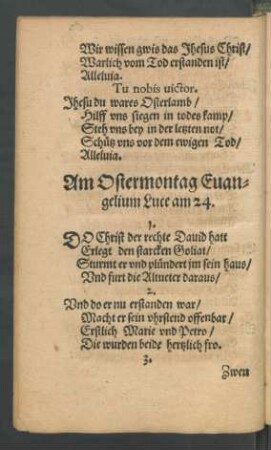 Wir wissen gwis das Jhesus Christ/
Warlich vom Tod erstanden ist/
Alleluia.
Tu nobis uictor.
Jhesu du wares Osterlamb/
Hilff vns siegen in todes kamp/
Steh vns bey in der letzten not/
Schütz vns vor dem ewigen Tod/
Alleluia.
Am Ostermontag Euan-
gelium Luce am 24.
1.
DO Christ der rechte Dauid hatt
Erlegt den starcken Goliat/
Sturmt er vnd plündert jm sein haus/
Vnd furt die Altueter daraus/
2.
Vnd do er nu erstanden war/
Macht er sein vhrstend offenbar/
Erstlich Marie vnd Petro/
Die wurden beide hertzlich fro.
3.
Zwen